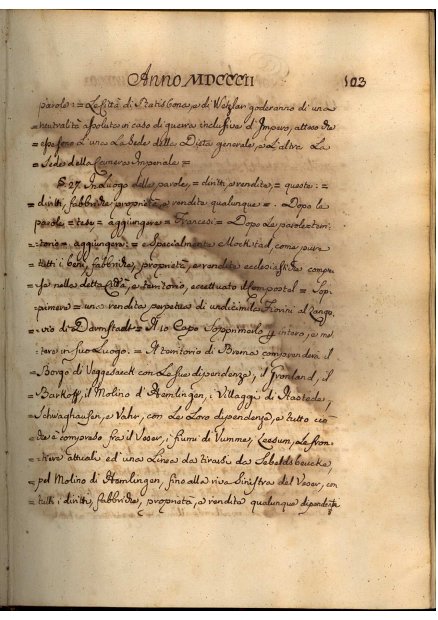 Anno MDCCCII 103
parole: = Le Città di Ratisbona, e di Wetzlar goderanno di una
= neutralità assoluta in caso di guerra inclusive d'Impero, atteso che
= esse sono L'una La Sede della Dieta generale, e L'altra La
= Sede della Camera Imperiale =
§. 27. In Luogo delle parole, = diritti, e rendite, = queste: =
= diritti, fabbriche, proprietà, e rendite qualunque = . Dopo le
parole = teste, = aggiungere = Francesi = Dopo Le parole = terri-
torio =, aggiungere: = Specialmente Mockstad, come pure
= tutti i beni, fabbriche, proprietà, e rendite ecclesiastiche compre-
se nelle detta Città, e territorio, eccettuato = Sop-
primere = una rendita perpetua di undicimila Fiorini al Lango-
vio di Darmstadt = Il 10 Capo Sopprimerlo intero, e met-
tere in suo Luogo: = Il territorio di Brema comprenderà il
= Borgo di Veggesaeck con Le sue dipendenze, il Gronland, il
= Barkoff, il Molino d'Hemlingen, i Villaggi di Hastede,
= Schvaghausen, e Vahr, con Le Loro dipendenze, e tutto ciò
che è compreso fra il Veser, i fiumi di Vumme, Leesum, Le fron-
= tiere attuali ed una Linea da tirarsi da Sebaldsbrucke,
= pel Molino di Hemlingen, fino alla riva Sinistra del Veser, con
= tutti i diritti, fabbriche, proprietà, e rendite qualunque dipendenti